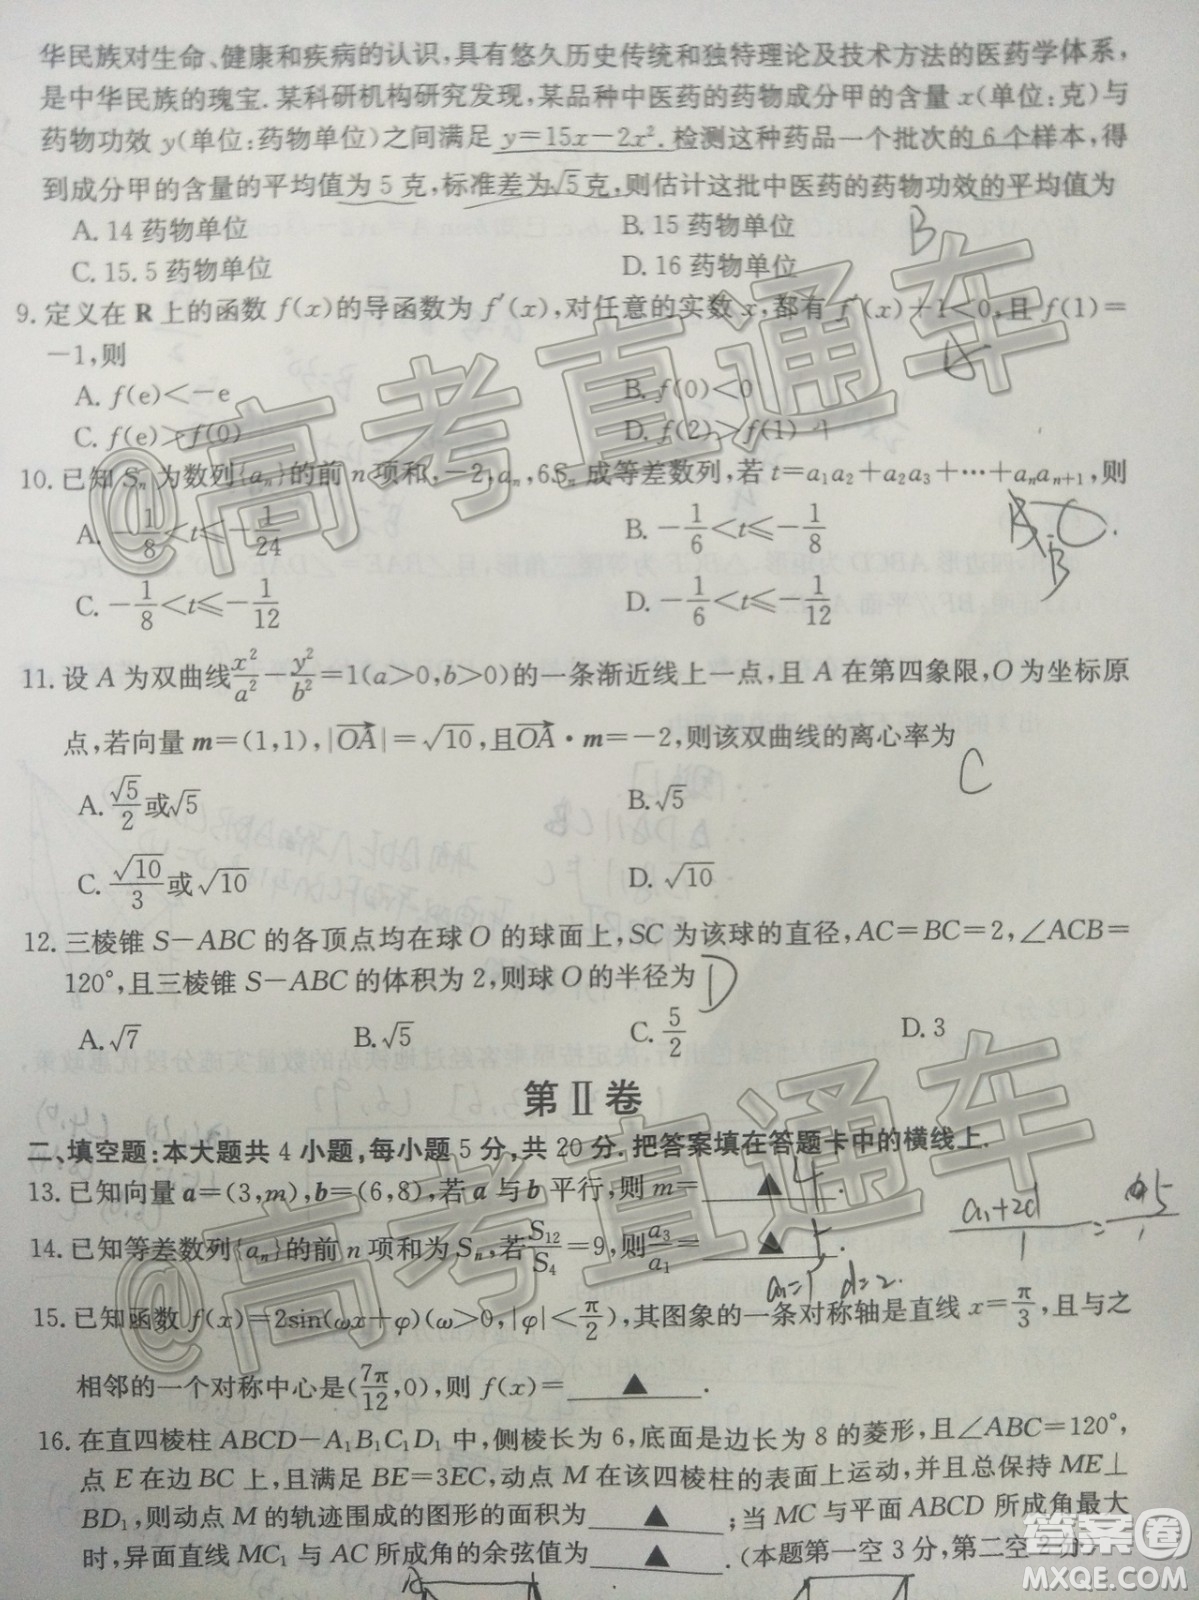 华民族对生命、健康和疾病的认识,具有悠久历史传统和独特理论及技术方法的医药学体系,
是中华民族的瑰宝.某科研机构研究发现,某品种中医药的药物成分甲的含量 x(单位:克)与
药物功效 y(单位:药物单位)之间满足 y=15x-2x².检测这种药品一个批次的 6 个样本,得
到成分甲的含量的平均值为 5 克,标准差为√5克,则估计这批中医药的药物功效的平均值为
A. 14 药物单位 B. 15 药物单位 B
C. 15.5 药物单位 D. 16 药物单位
9. 定义在 R 上的函数 f(x)的导函数为 f′(x),对任意的实数 x,都有 f′(x)+1<0,且 f(1)=
-1,则 A
A. f(e)<-e B. f(0)<0
C. f(e)>f(0) D. f(2)>f(1)
10. 已知 Sₙ 为数列{aₙ}的前 n 项和,-2,aₙ,6Sₙ 成等差数列,若 t=a₁a₂+a₂a₃+…+aₙaₙ₊₁,则
A. -1/8<t≤-1/24 B. -1/6<t≤-1/8
C. -1/8<t≤-1/12 D. -1/6<t≤-1/12
B
11. 设 A 为双曲线x²/a²-y²/b²=1(a>0,b>0)的一条渐近线上一点,且 A 在第四象限,O 为坐标原
点,若向量 m=(1,1),|OA→|=√10,且OA→·m=-2,则该双曲线的离心率为 C
A. √5/2或√5 B. √5
C. √10/3或√10 D. √10
12. 三棱锥 S-ABC 的各顶点均在球 O 的球面上,SC 为该球的直径,AC=BC=2,∠ACB=
120°,且三棱锥 S-ABC 的体积为 2,则球 O 的半径为 D
A. √7 B. √5 C. 5/2 D. 3
第Ⅱ卷
二、填空题:本大题共 4 小题,每小题 5 分,共 20 分.把答案填在答题卡中的横线上.
13. 已知向量 a=(3,m),b=(6,8),若 a 与 b 平行,则 m=▲ 4.
14. 已知等差数列{aₙ}的前 n 项和为 Sₙ,若S₁₂/S₄=9,则a₃/a₁=▲ 5.
a₁+2d/1=
a₁=1 d=2.
15. 已知函数 f(x)=2sin(ωx+φ)(ω>0,|φ|<π/2),其图象的一条对称轴是直线 x=π/3,且与之
相邻的一个对称中心是(7π/12,0),则 f(x)=▲.
16. 在直四棱柱 ABCD-A₁B₁C₁D₁ 中,侧棱长为 6,底面是边长为 8 的菱形,且∠ABC=120°,
点 E 在边 BC 上,且满足 BE=3EC,动点 M 在该四棱柱的表面上运动,并且总保持 ME⊥
BD₁,则动点 M 的轨迹围成的图形的面积为▲;当 MC 与平面 ABCD 所成角最大
时,异面直线 MC₁ 与 AC 所成角的余弦值为▲.(本题第一空 3 分,第二空 2 分)
@高考直通车
@高考直通车
答案圈
MXQE.COM